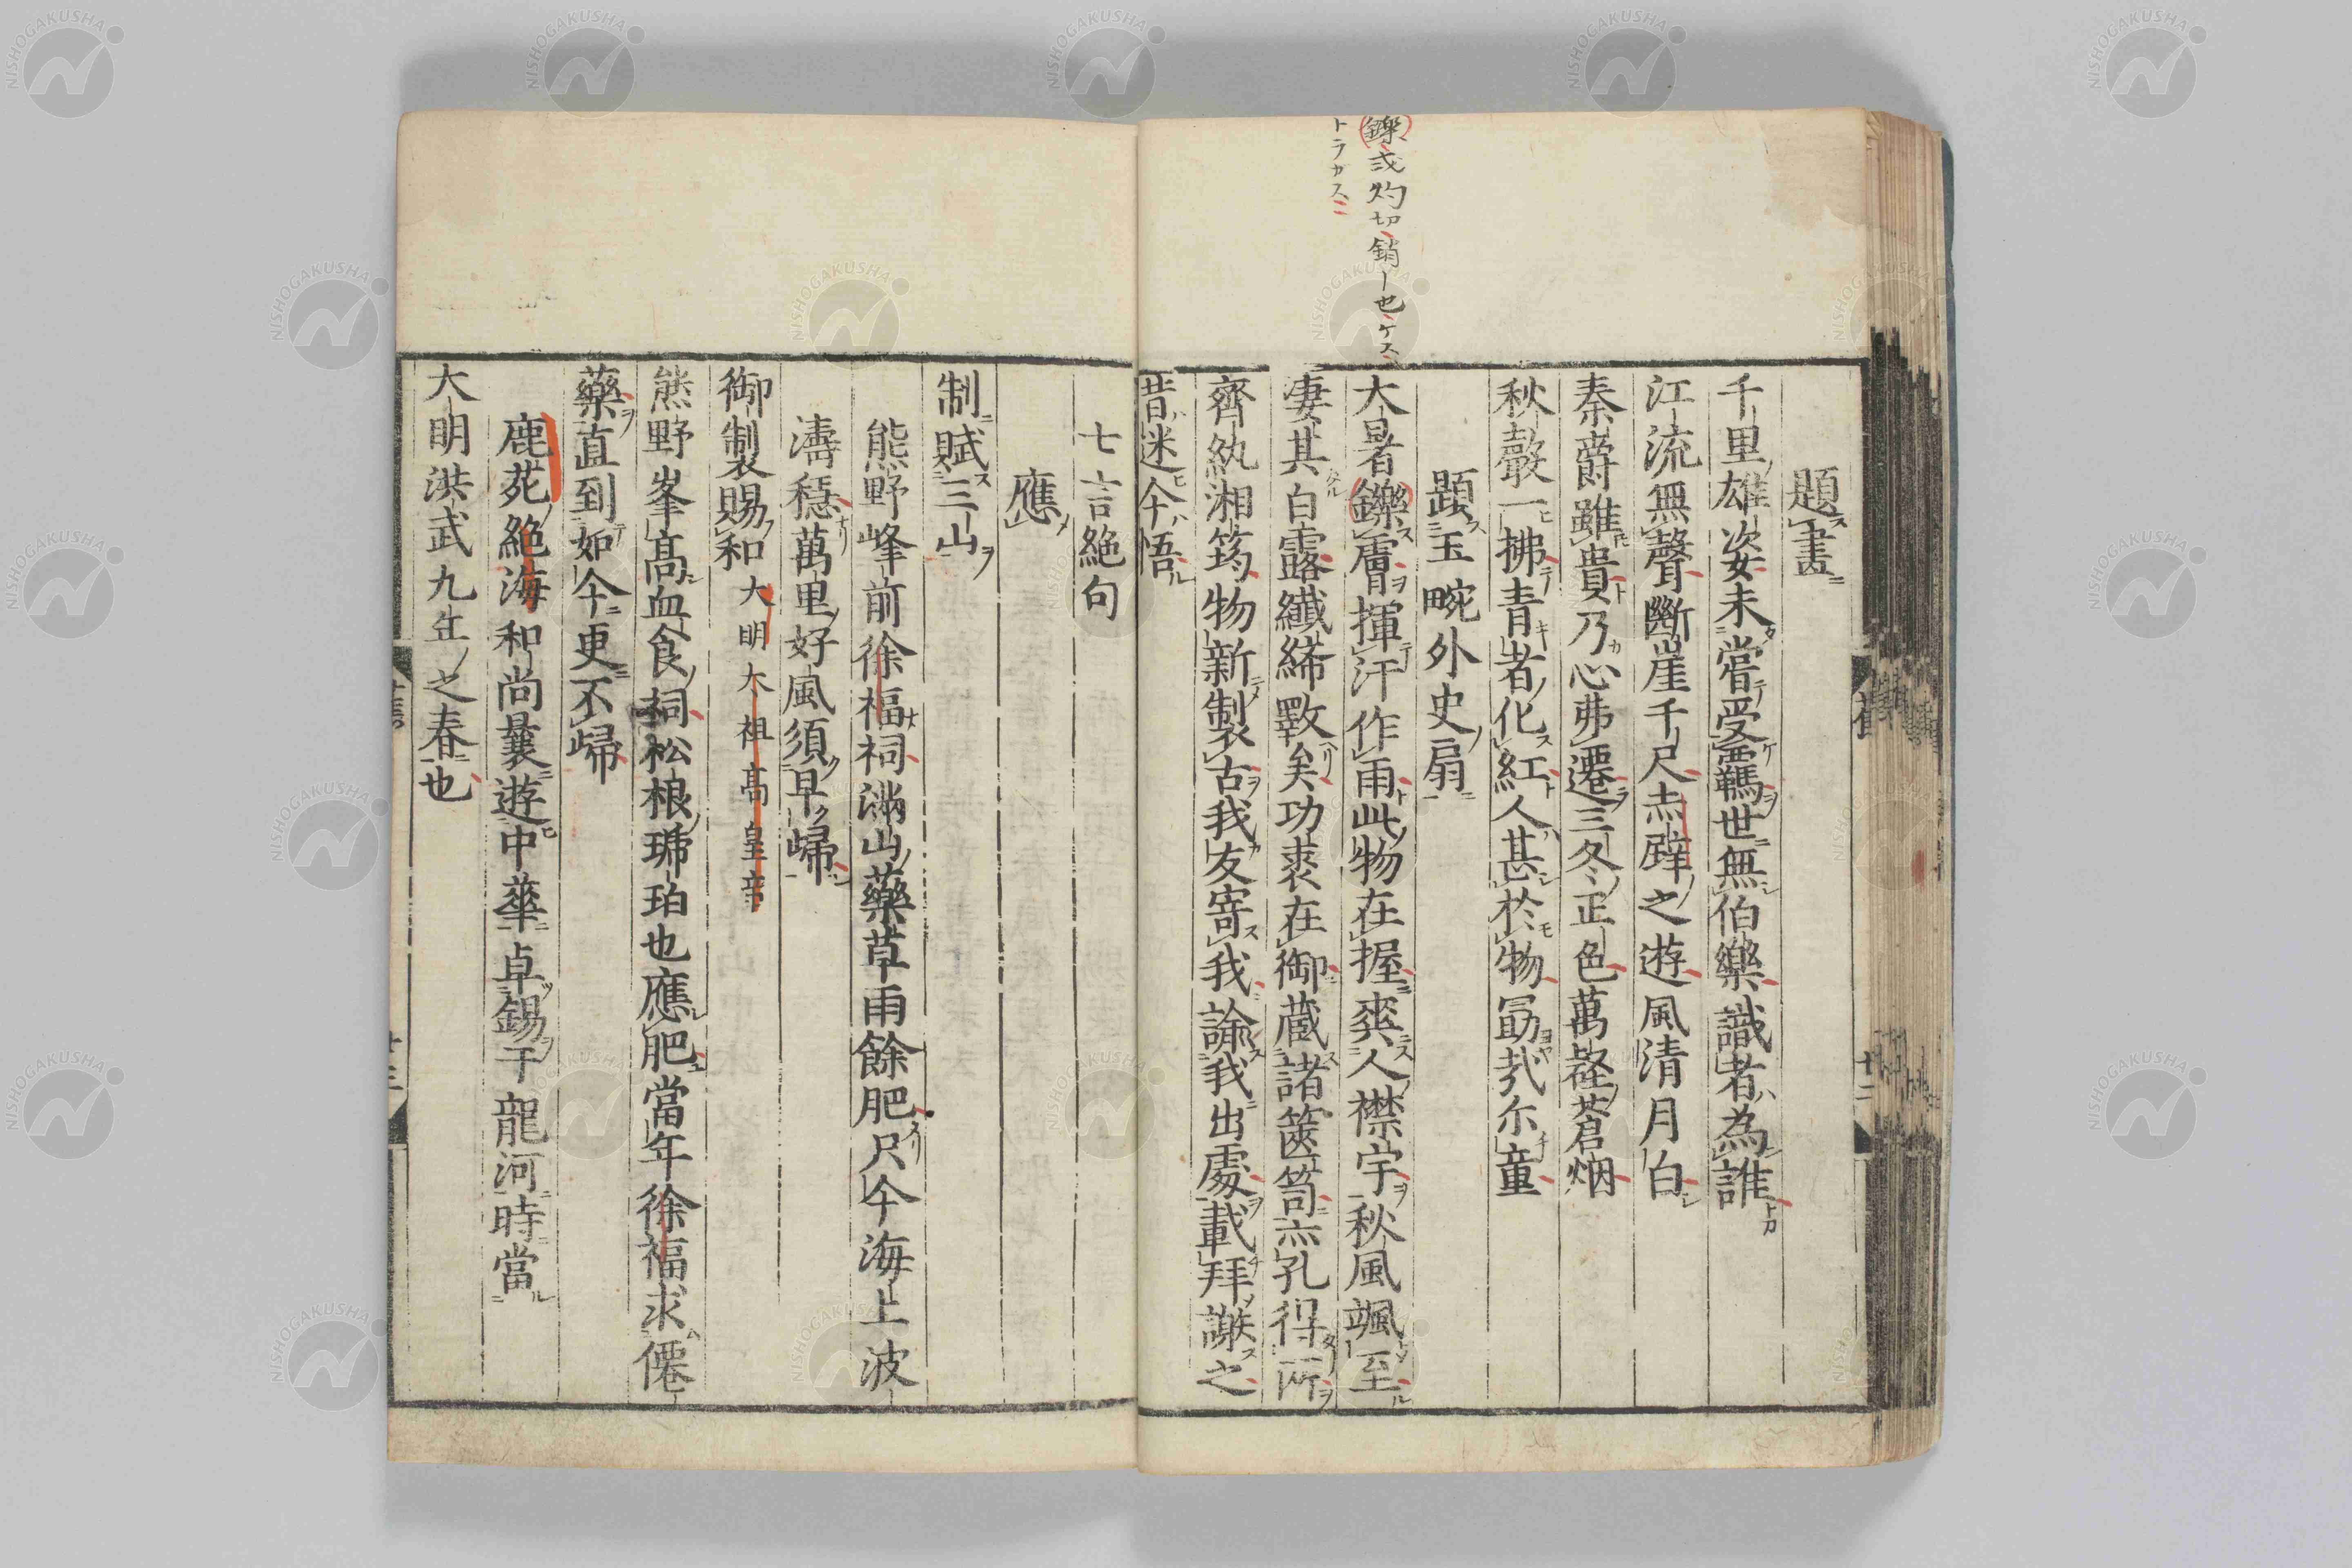 鑠 式灼切銷ー也ケス
トラカス
題畫
千里雄姿未嘗受羈世無伯樂識者為誰
江流無聲斷崖千尺赤壁之遊風清月白
秦爵雖貴乃心弗遷三冬正色萬壑蒼烟
秋聲一拂青者化紅人甚於物勗哉尓童
題玉畹外史扇
大暑鑠膚揮汗作雨此物在握爽人襟宇秋風颯至
凄其白露纖絺斁矣功裘在御蔵諸篋笥亦孔得所
齊紈湘筠物新製古我友寄我諭我出處載拜謝之
昔迷今悟
七言絶句
應
制賦三山
熊野峰前徐福祠滿山藥草雨餘肥只今海上波
濤穏萬里好風須早歸
御製賜和 大明太祖高皇帝
熊野峯高血食祠松根琥珀也應肥當年徐福求僊
藥直到如今更不歸
鹿苑絶海和尚曩遊中華卓錫于龍河時當
大明洪武九年之春也